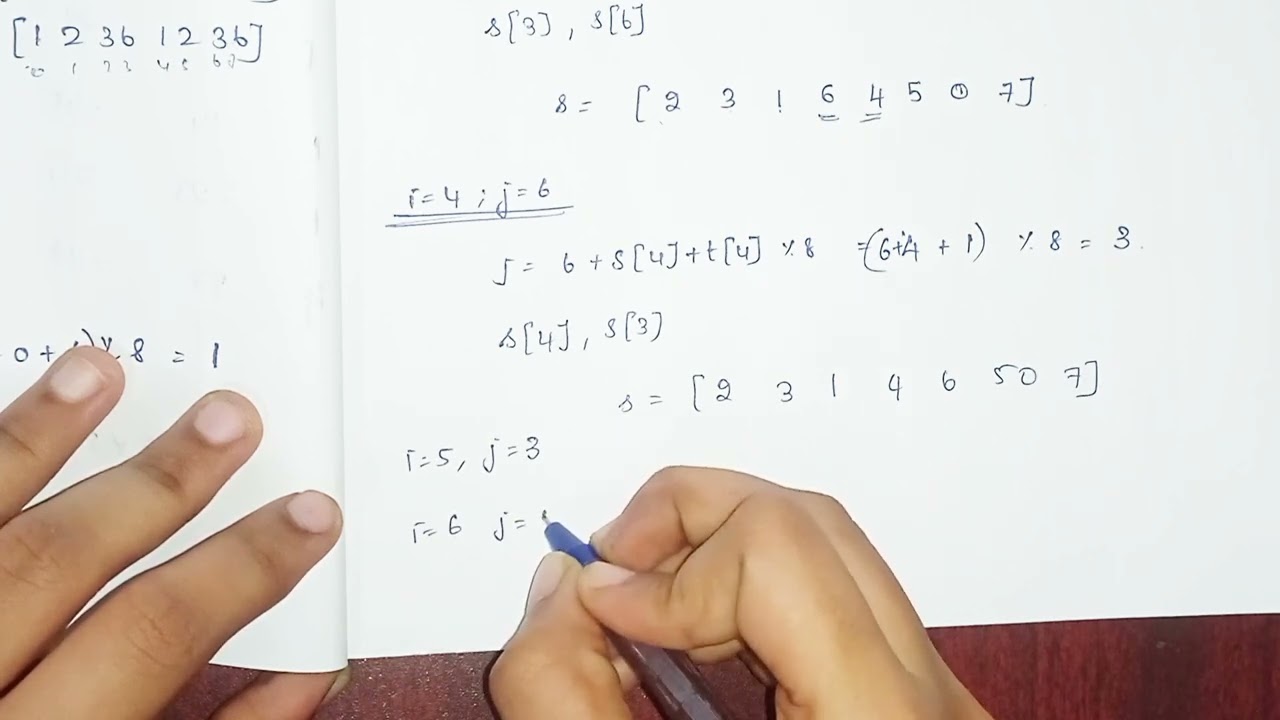 [1 2 3 6 1 2 3 6]
0 1 2 3 4 5 6 7
0 + 8 = 1
s[3] , s[6]
s = [ 2 3 1 6 4 5 0 7 ]
i=4 ; j=6
j = 6 + s[4] + t[4] % 8 = (6+4 + 1) % 8 = 3
s[4] , s[3]
s = [ 2 3 1 4 6 5 0 7 ]
i=5, j=3
i=6 j=